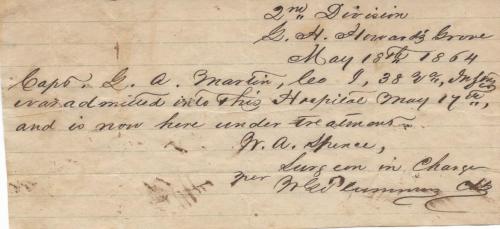 2nd Division
G. H. Howard's Grove
May 18th 1864
Capt. G. A. Martin, Co I, 38 Va, Inftry
was admitted into this Hospital May 17th,
and is now here under treatment.
W. A. Spence,
Surgeon in Charge
per
Plummer